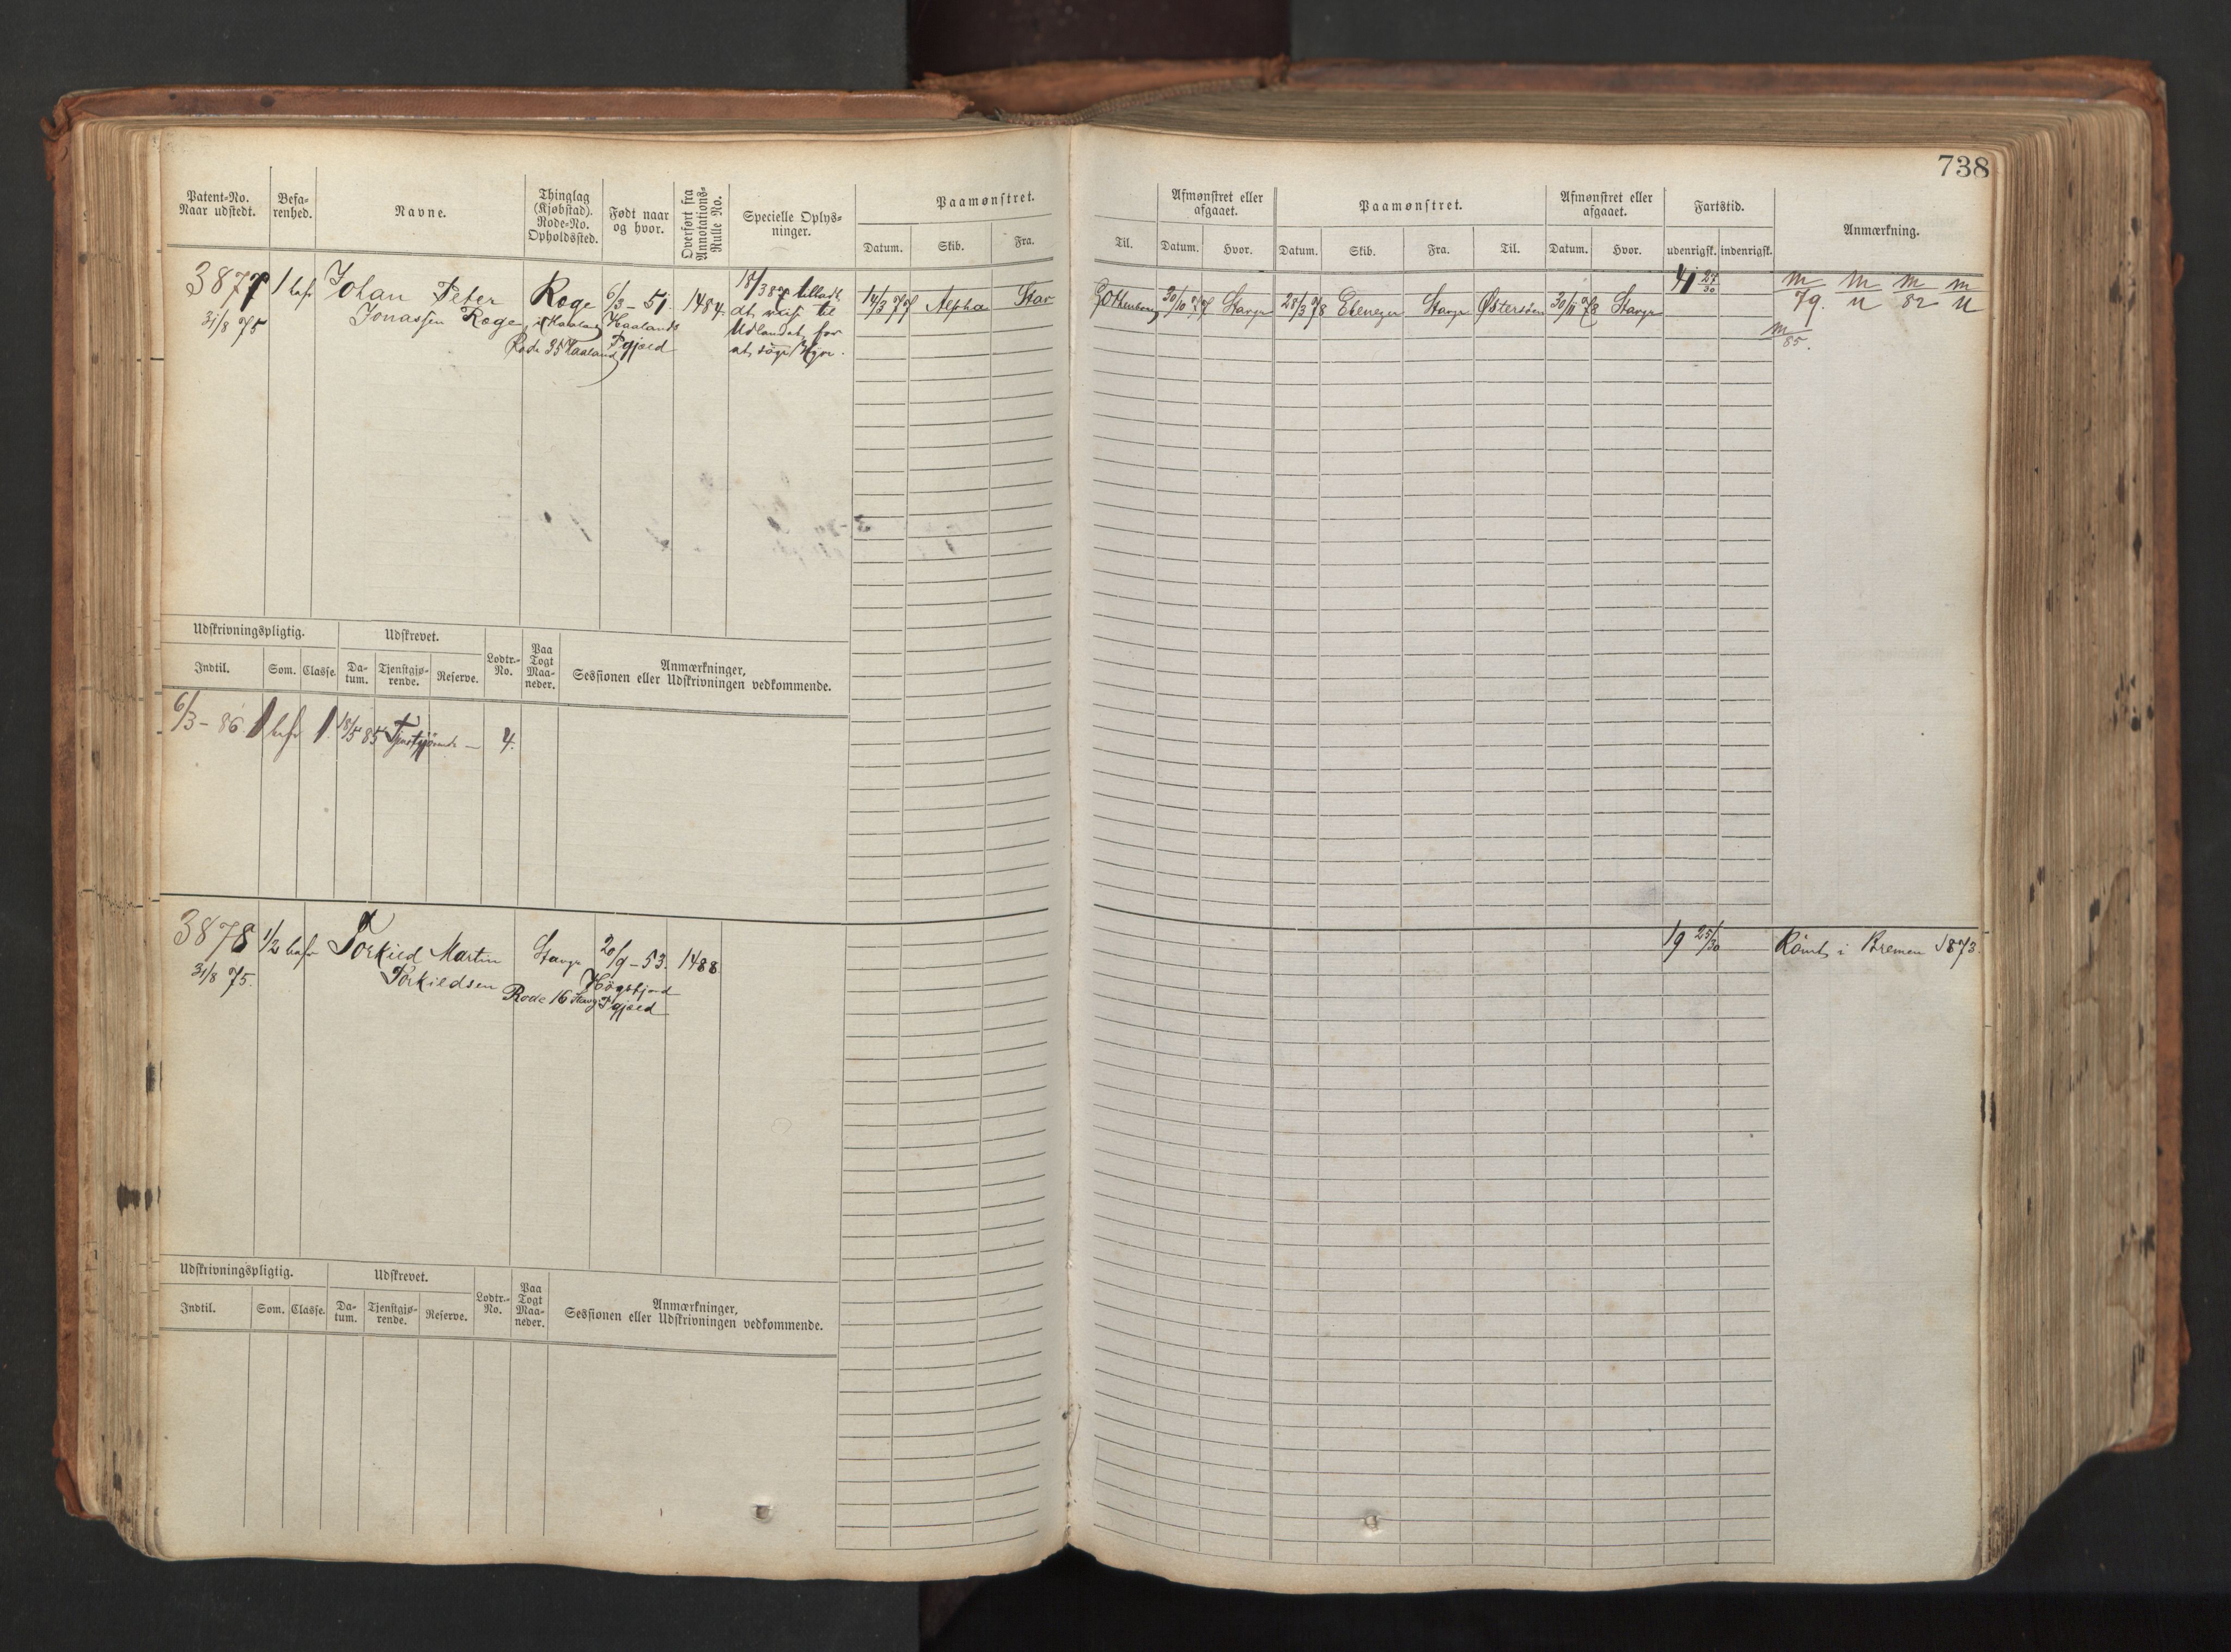 738
Patent-No. Naar udstedt. Befa-renhed. Navne. Thinglag (Kjøbstad). Rode-No. Opholdssted. Født naar og hvor. Overført fra Annotations-Rulle No. Specielle Oplys-ninger. Paamønstret. Datum. Skib. Fra.
Til. Afmønstret eller afgaaet. Datum. Hvor. Paamønstret. Datum. Skib. Fra. Til. Afmønstret eller afgaaet. Datum. Hvor. Fartstid. udenrigsk. indenrigsk. Anmærkning.
3877 1 bef Johan Peter Roge 6/3 - 51. 1484. 18/3 87 tilladt
31/8 75 Jonassen Roge, i Haaland Haalands at reise til
Rode 35 Haaland Pgjæld Udlandet for
at søge Hyre.
14/3 77 Alpha Stav
Gottenborg 30/10 77 Stavgr 28/3 78 Ebenezer Stavgr Østersöen 30/11 78 Stavgr 41 27/30 m m m m
79. u 82 u
m
85.
Udskrivningspligtig. Udskrevet. Lodtr.-No. Paa Togt Maa-neder. Anmærkninger,
Indtil. Som. Classe. Da-tum. Tjenstgjø-rende. Reserve. Sessionen eller Udskrivningen vedkommende.
6/3 - 86 1 bef 1. 18/5 85 Tjenstgjørende - 4.
3878 1/2 bef Torkild Martin Stavgr 20/9 - 53. 1488
31/8 75. Torkildsen Högsfjord
Rode 16 Stavgr Pgjæld
19 25/30 Römt i Bremen 1873.
Udskrivningspligtig. Udskrevet. Lodtr.-No. Paa Togt Maa-neder. Anmærkninger,
Indtil. Som. Classe. Da-tum. Tjenstgjø-rende. Reserve. Sessionen eller Udskrivningen vedkommende.